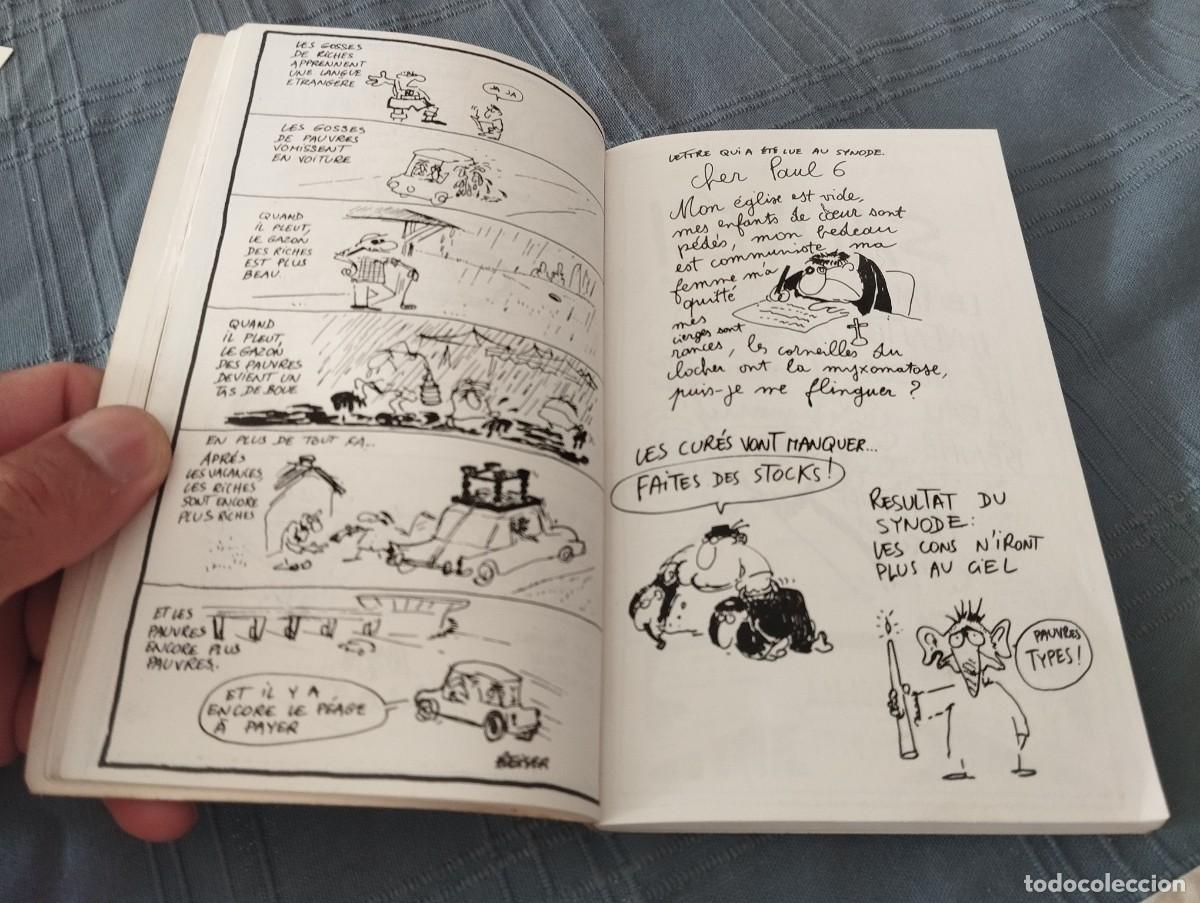 LES GOSSES
DE RICHES
APPRENNENT
UNE LANGUE
ETRANGERE
JA JA
LES GOSSES
DE PAUVRES
VOMISSENT
EN VOITURE
QUAND
IL PLEUT,
LE GAZON
DES RICHES
EST PLUS
BEAU.
QUAND
IL PLEUT,
LE GAZON
DES PAUVRES
DEVIENT UN
TAS DE BOUE
EN PLUS DE TOUT ÇA...
APRÉS
LES VACANCES,
LES RICHES
SONT ENCORE
PLUS RICHES
ET LES
PAUVRES
ENCORE PLUS
PAUVRES.
ET IL Y A
ENCORE LE PÉAGE
À PAYER
REISER
LETTRE QUI A ÉTÉ LUE AU SYNODE.
Cher Paul 6
Mon église est vide,
mes enfants de cœur sont
pédés, mon bedeau
est communiste, ma
femme m'a
quitté
mes
cierges sont
rances, les corneilles du
clocher ont la myxomatose,
puis-je me flinguer ?
LES CURÉS VONT MANQUER...
FAITES DES STOCKS!
RESULTAT DU
SYNODE:
LES CONS N'IRONT
PLUS AU CIEL
PAUVRES
TYPES!
todocoleccion